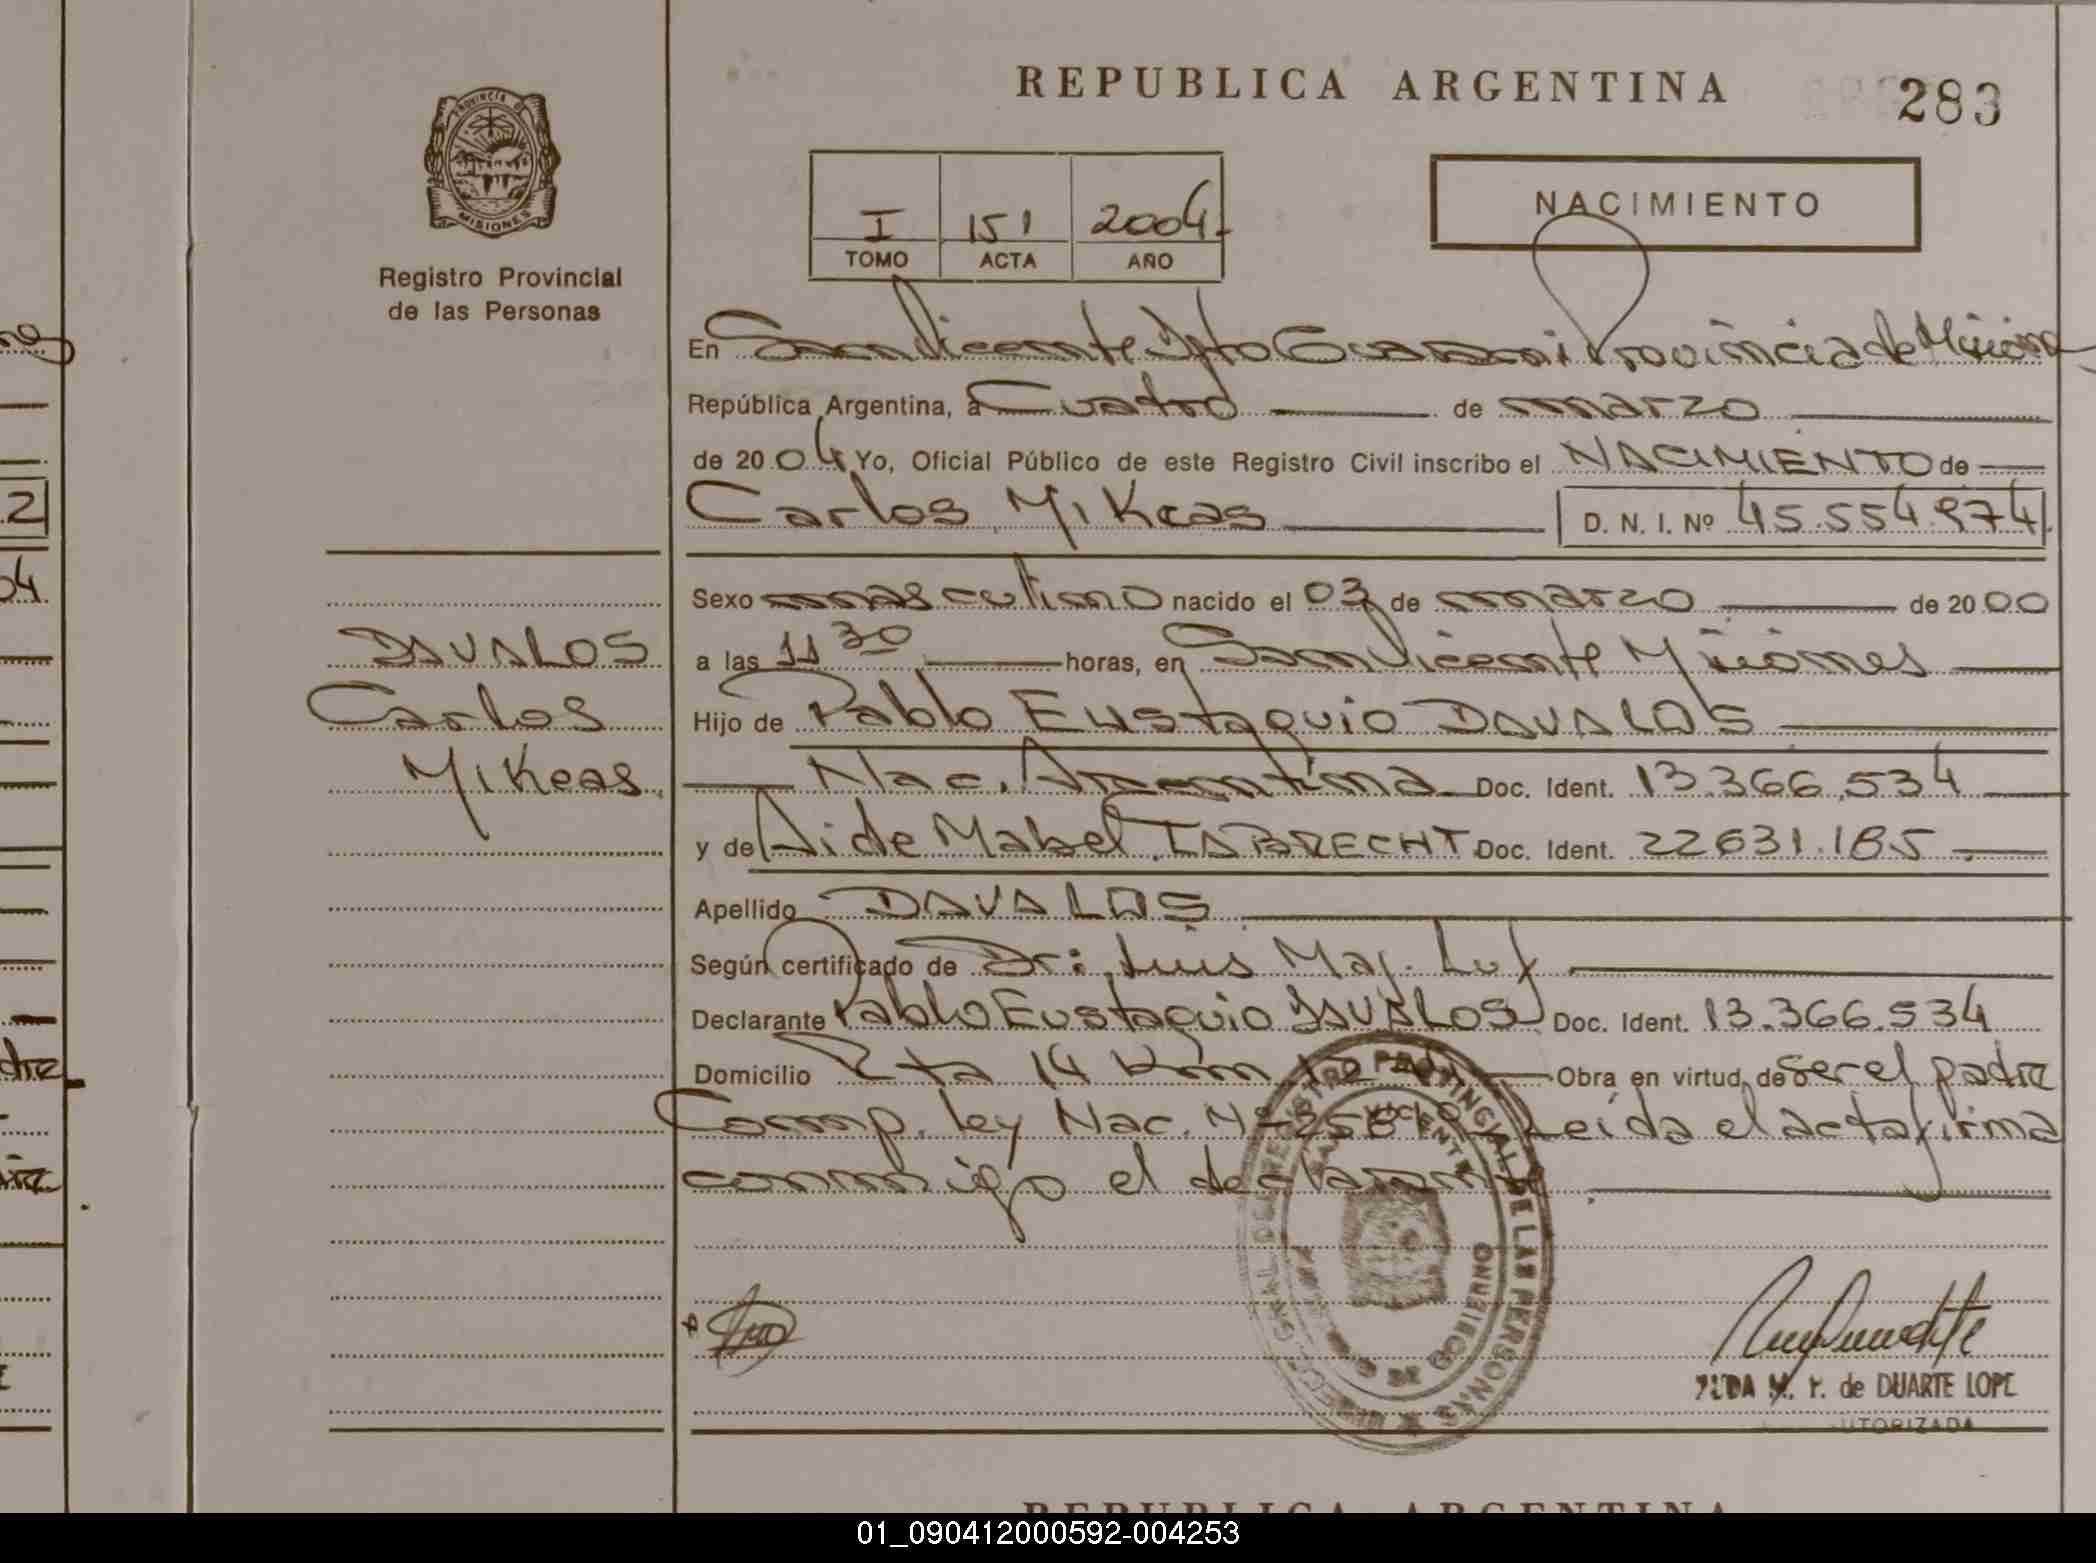 REPUBLICA ARGENTINA
283
PROVINCIA DE
MISIONES
Registro Provincial
de las Personas
I 151 2004
TOMO ACTA AÑO
NACIMIENTO
En San Vicente Dpto Guarani Provincia de Misiones
República Argentina, a Cuatro de marzo
de 2004 Yo, Oficial Público de este Registro Civil inscribo el NACIMIENTO de
Carlos Mikeas D. N. I. Nº 45.554.974
Sexo masculino nacido el 03 de marzo de 2000
DAVALOS
a las 11 30 horas, en San Vicente Misiones
Carlos
Hijo de Pablo Eustaquio DAVALOS
Mikeas
Nac. Argentina Doc. Ident. 13.366.534
y de Aide Mabel Doc. Ident. 22631.185
Apellido DAVALOS
Según certificado de Dr: Luis Maj. Luf
Declarante Pablo Eustaquio DAVALOS Doc. Ident. 13.366.534
Domicilio Rta 14 Km Obra en virtud de ser el padre
Comp. ley Nac. Nº Leída el acta firma
conmigo el declarante
REGISTRO PROVINCIAL DE LAS PERSONAS
SAN VICENTE
DE GOBIERNO
de DUARTE LOPE
UTORIZADA
REPUBLICA ARGENTINA
01_090412000592-004253